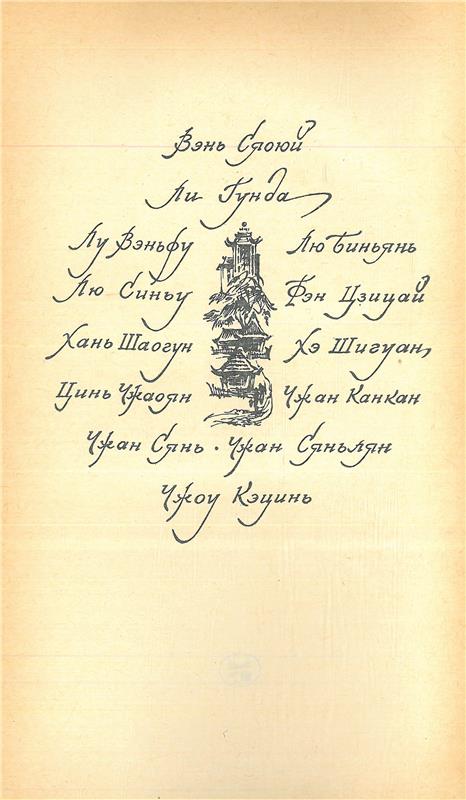 Вэнь Сяоюй
Ли Гунда
Лу Вэньфу Лю Биньянь
Лю Синьу Фэн Цзицай
Хань Шаогун Хэ Шигуан
Цинь Чжаоян Чжан Канкан
Чжан Сянь · Чжан Сяньлян
Чжоу Кэцинь